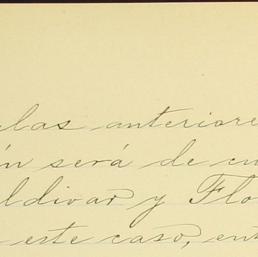 las anteriore
n será de cu
ldivar y Flo
este caso, ent